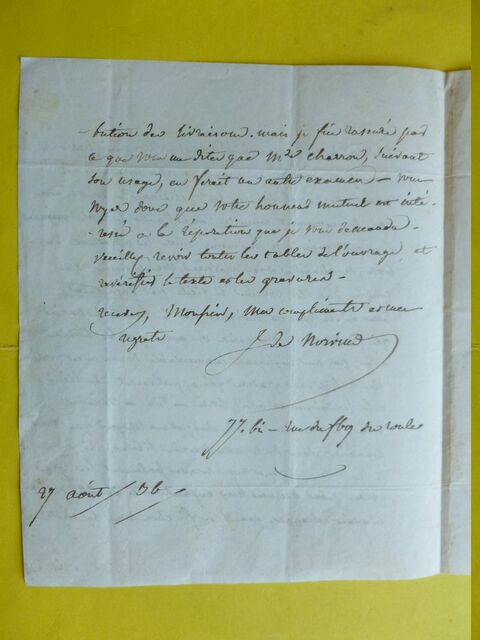 -bution des livraisons. mais je fus rassuré par
ce que vous me dites que Mr. charron, suivant
son usage, en ferait un autre examen — vous
voyez donc que votre honneur mutuel est inté-
-ressé à la réparation que je vous demande.
veuillez revoir toutes les tables de l'ouvrage, et
revérifier le texte et les gravures.
recevez, Monsieur, mes compliments et mes
regrets
J. de Norvins
77. bis — rue du fbg du roule
27 août / 36